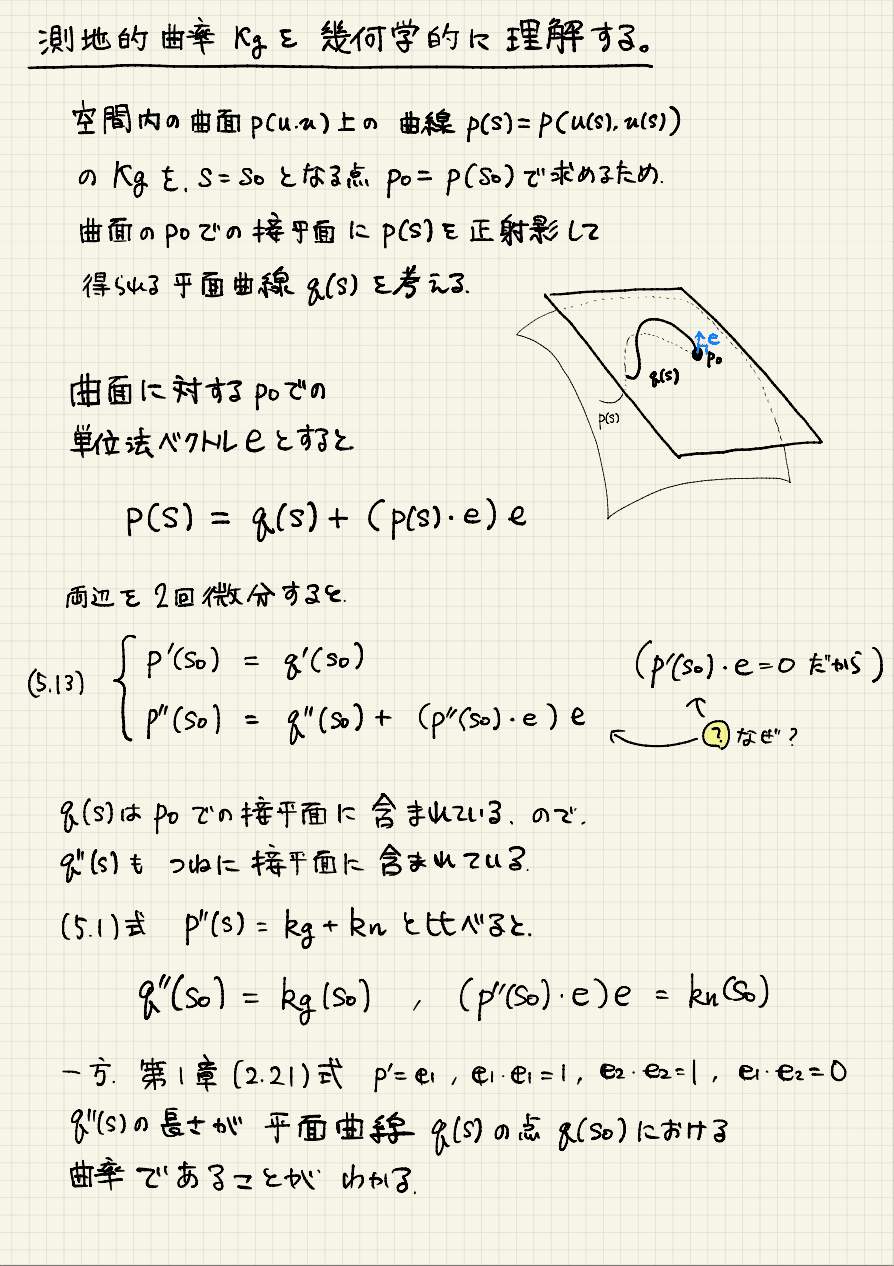 測地的曲率 Kgを 幾何学的に 理解する。
空間内の曲面 p(u.u)上の 曲線 p(s)=p(u(s).u(s))
の Kgを、s=s₀となる点 p₀=p(s₀)で求めるため.
曲面のp₀での接平面に p(s)を正射影して
得られる平面曲線 q(s)を考える.
e
p₀
q(s)
p(s)
曲面に対するp₀での
単位法ベクトルeとすると
p(s) = q(s) + (p(s)·e)e
両辺を2回微分すると.
(5.13)
p'(s₀) = q'(s₀)
(p'(s₀)·e=0 だから)
p''(s₀) = q''(s₀) + (p''(s₀)·e) e
? なぜ?
q(s)は p₀での接平面に 含まれている、ので.
q''(s)も つねに接平面に含まれている.
(5.1)式 p''(s) = kg + kn と比べると.
q''(s₀) = kg(s₀) , (p''(s₀)·e)e = kn(s₀)
一方. 第1章(2.21)式 p'=e₁, e₁·e₁=1, e₂·e₂=1, e₁·e₂=0
q''(s)の長さが 平面曲線 q(s)の点 q(s₀)における
曲率であることが わかる.